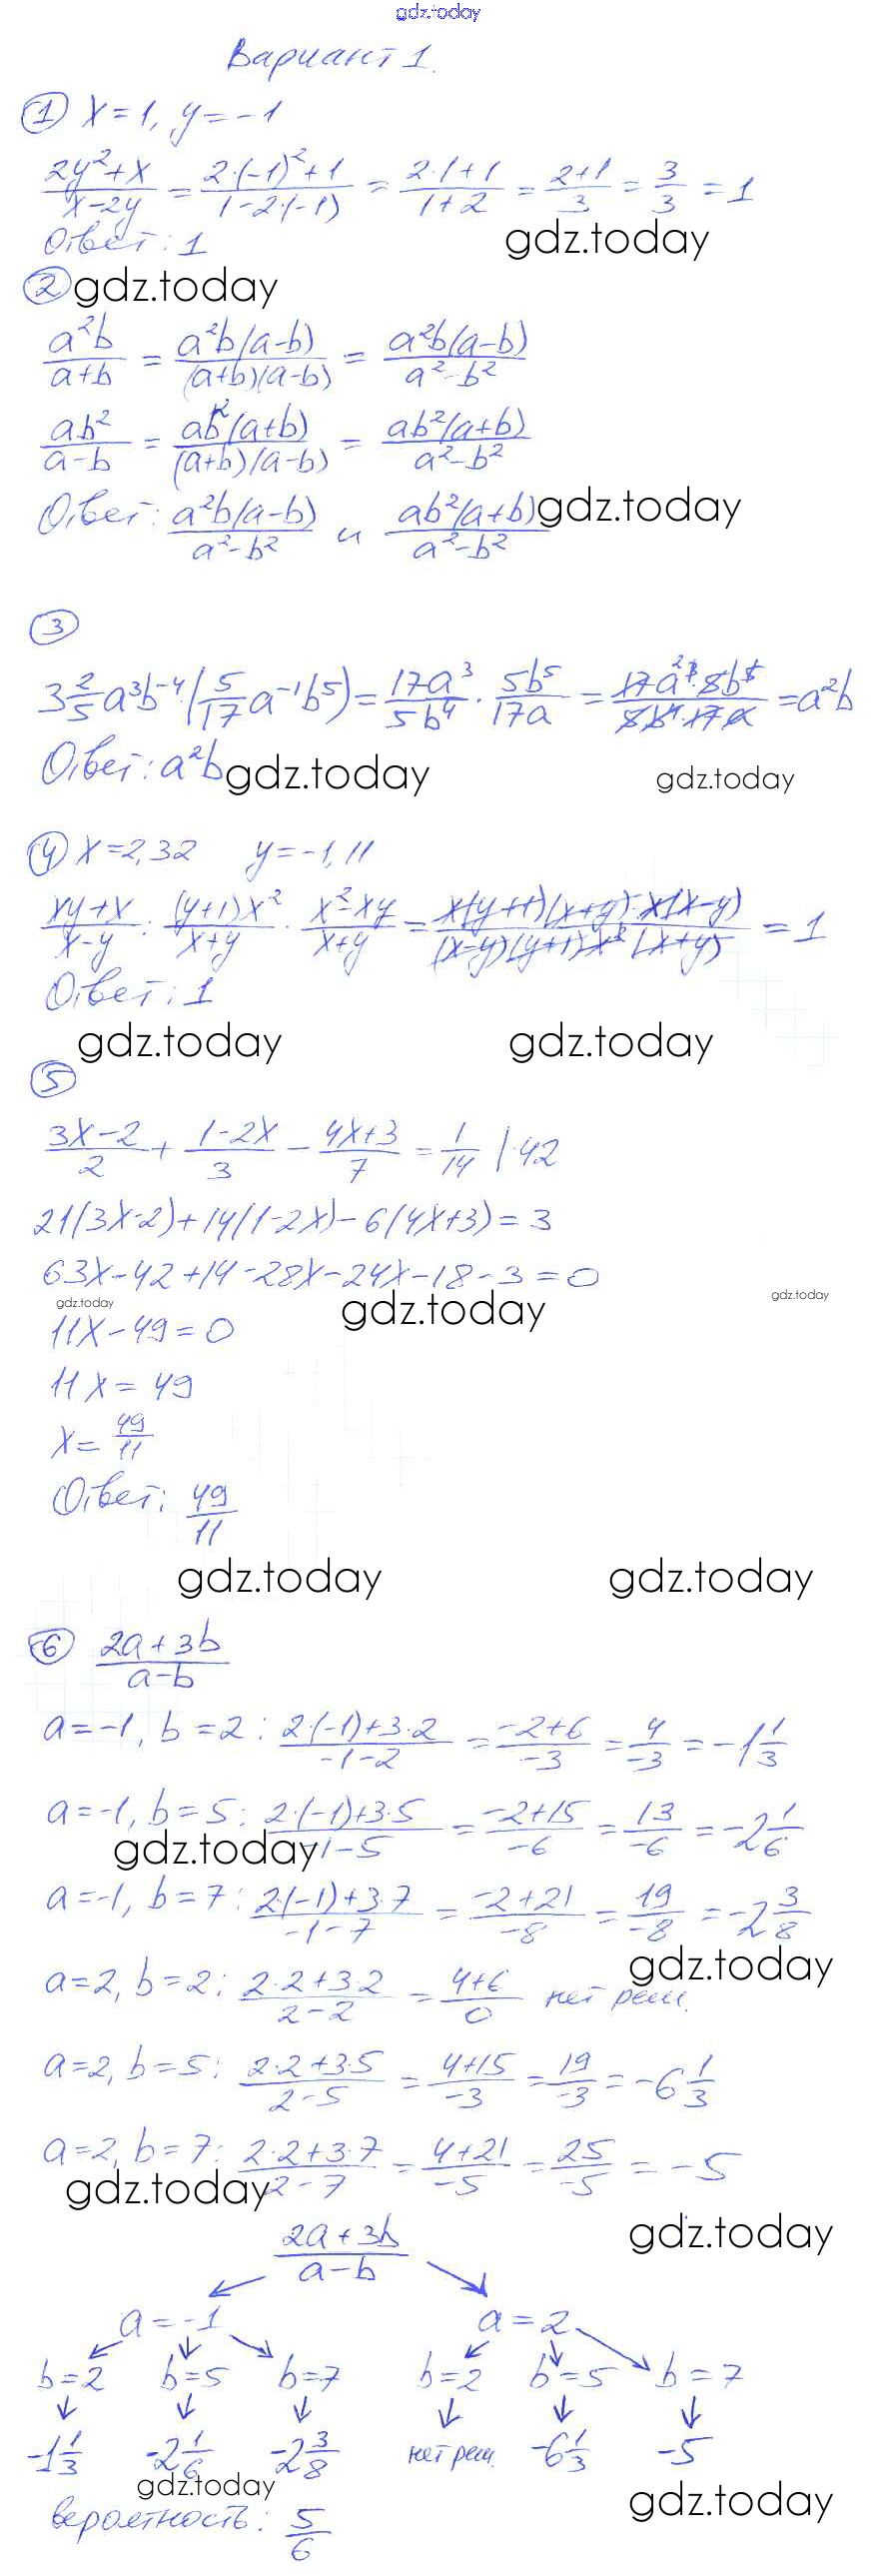 gdz.today
Вариант 1.
① x=1, y=-1
(2y²+x)/(x-2y) = (2·(-1)²+1)/(1-2·(-1)) = (2·1+1)/(1+2) = (2+1)/3 = 3/3 = 1
Ответ: 1
gdz.today
② gdz.today
a²b/(a+b) = a²b(a-b)/((a+b)(a-b)) = a²b(a-b)/(a²-b²)
ab²/(a-b) = ab²(a+b)/((a+b)(a-b)) = ab²(a+b)/(a²-b²)
Ответ: a²b(a-b)/(a²-b²) и ab²(a+b)/(a²-b²) gdz.today
③
3 2/5 a³b⁻⁴·(5/17 a⁻¹b⁵) = 17a³/5b⁴ · 5b⁵/17a = 17a³·5b⁵/5b⁴·17a = a²b
Ответ: a²b gdz.today gdz.today
④ x=2,32 y=-1,11
(xy+x)/(x-y) : (y+1)x²/(x+y) · (x²-xy)/(x+y) = x(y+1)(x+y)·x(x-y)/((x-y)(y+1)x²(x+y)) = 1
Ответ: 1
gdz.today gdz.today
⑤
(3x-2)/2 + (1-2x)/3 - (4x+3)/7 = 1/14 |·42
21(3x-2)+14(1-2x)-6(4x+3)=3
63x-42+14-28x-24x-18-3=0
gdz.today gdz.today gdz.today
11x-49=0
11x=49
x=49/11
Ответ: 49/11
gdz.today gdz.today
⑥ (2a+3b)/(a-b)
a=-1, b=2: (2·(-1)+3·2)/(-1-2) = (-2+6)/-3 = 4/-3 = -1 1/3
a=-1, b=5: (2·(-1)+3·5)/(-1-5) = (-2+15)/-6 = 13/-6 = -2 1/6
gdz.today
a=-1, b=7: (2·(-1)+3·7)/(-1-7) = (-2+21)/-8 = 19/-8 = -2 3/8
gdz.today
a=2, b=2: (2·2+3·2)/(2-2) = (4+6)/0 нет реш.
a=2, b=5: (2·2+3·5)/(2-5) = (4+15)/-3 = 19/-3 = -6 1/3
a=2, b=7: (2·2+3·7)/(2-7) = (4+21)/-5 = 25/-5 = -5
gdz.today
gdz.today
(2a+3b)/(a-b)
a=-1 a=2
b=2 b=5 b=7 b=2 b=5 b=7
-1 1/3 -2 1/6 -2 3/8 нет реш. -6 1/3 -5
gdz.today gdz.today
вероятность: 5/6